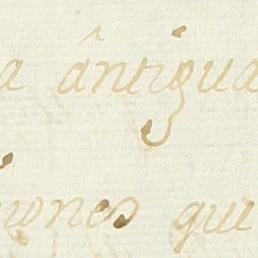 a ântigua
iones que